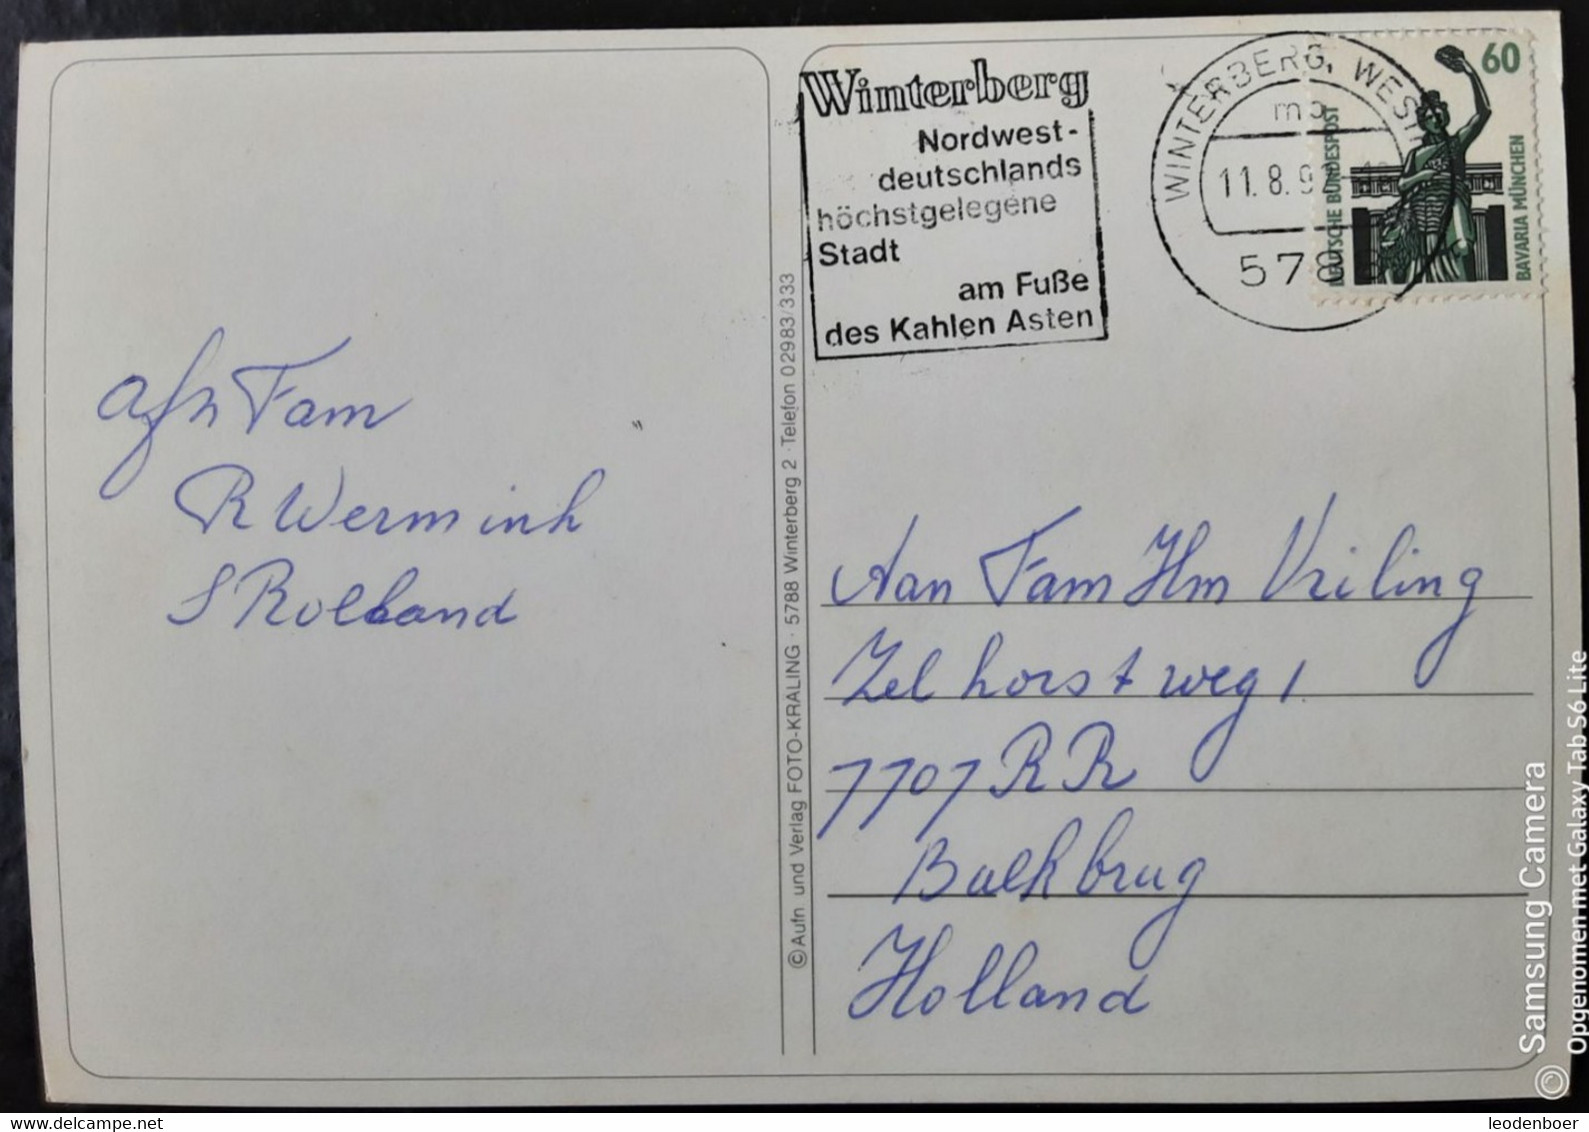 afz Fam
R Wermink
S Rolland
© Aufn. und Verlag FOTO-KRALING · 5788 Winterberg 2 · Telefon 02983/333
Winterberg
Nordwest-
deutschlands
höchstgelegene
Stadt
am Fuße
des Kahlen Asten
WINTERBERG, WESTF
mb
11.8.9
578
60
DEUTSCHE BUNDESPOST
BAVARIA MÜNCHEN
Aan Fam Hm Vriling
Zelhorstweg 1
7707 RR
Balkbrug
Holland
© Samsung Camera
Opgenomen met Galaxy Tab S6 Lite
delcampe.net
leodenboer